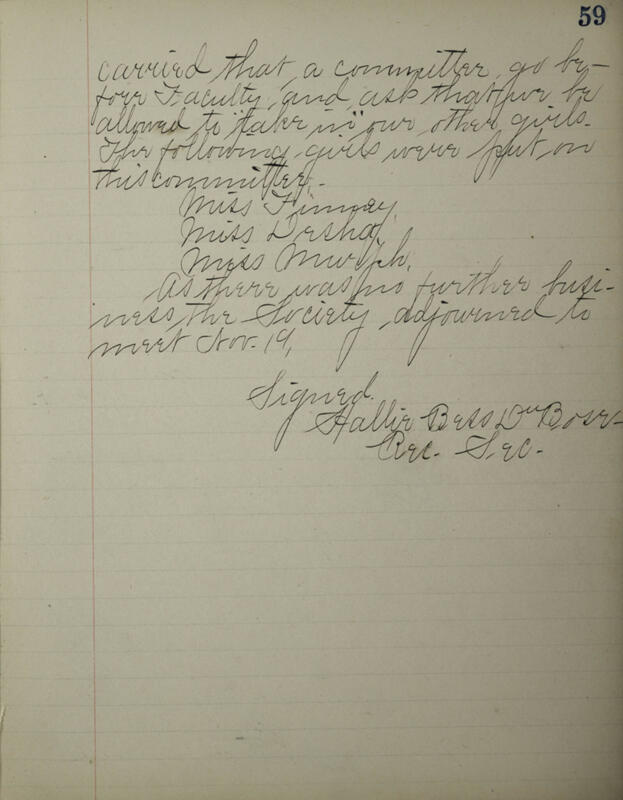 59
carried that a committee go be-
fore Faculty and ask that we be
allowed to "take in" our other girls.
The following girls were put on
this committee,-
Miss Finney,
Miss Desha,
Miss Murph.
As there was no further busi-
ness the Society adjourned to
meet Nov. 19,
Signed.
Hallie Bess DuBose-
Rec. Sec.-